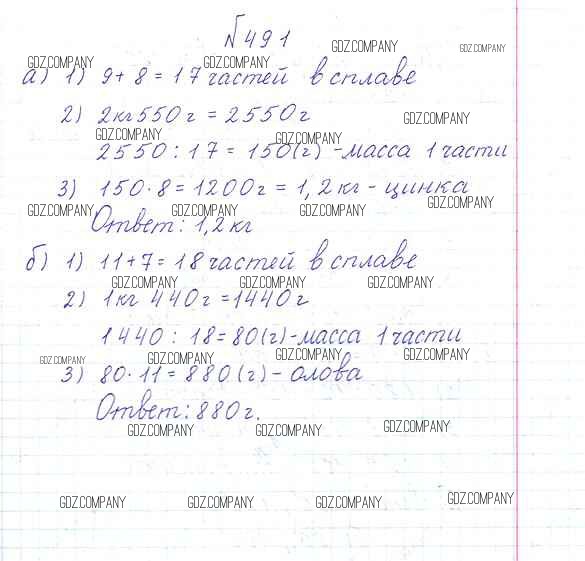 №491
GDZ.COMPANY GDZ.COMPANY
GDZ.COMPANY GDZ.COMPANY
а) 1) 9+8=17 частей в сплаве
2) 2кг 550г = 2550г
GDZ.COMPANY
GDZ.COMPANY GDZ.COMPANY
2550:17=150(г)-масса 1 части
3) 150·8=1200г=1,2кг-цинка
GDZ.COMPANY GDZ.COMPANY GDZ.COMPANY GDZ.COMPANY
Ответ: 1,2кг
б) 1) 11+7=18 частей в сплаве
GDZ.COMPANY GDZ.COMPANY GDZ.COMPANY
2) 1кг 440г=1440г
1440:18=80(г)-масса 1 части
GDZ.COMPANY GDZ.COMPANY GDZ.COMPANY GDZ.COMPANY
3) 80·11=880(г)-олова
Ответ: 880г.
GDZ.COMPANY GDZ.COMPANY GDZ.COMPANY
GDZ.COMPANY GDZ.COMPANY GDZ.COMPANY GDZ.COMPANY